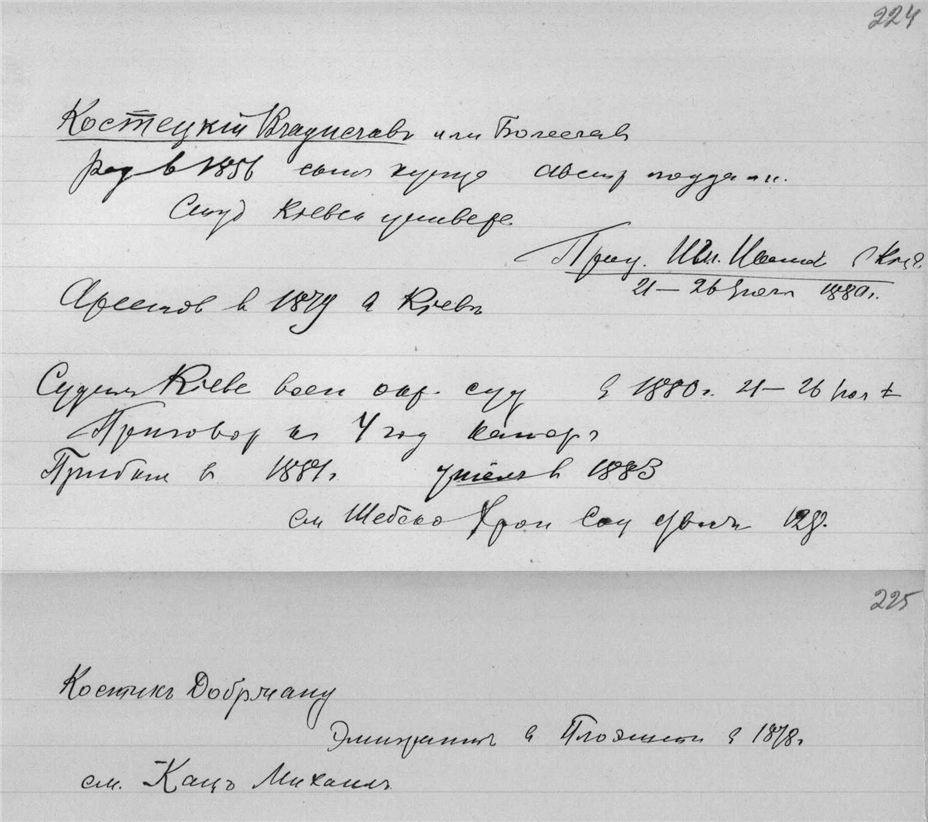 224
Костецкій Владиславъ или Болеслав
род в 1856 сынъ купца австр поддан.
Студ Кіевск универс
Проц. Ив. Иванов
21 — 26 1880г.
Арестов в 1879 в Кіевѣ
Судим Кіеве воен окр. суд в 1880г. 21 — 26
Приговор на 4 год каторг
Прибыл в 1881г. умеръ в 1883
см Шебеко Хрон Соц движ 128.
225
Костикъ Добрчану
Эмигрант в Плоэшти в 1878г
см. Кацъ Михаилъ